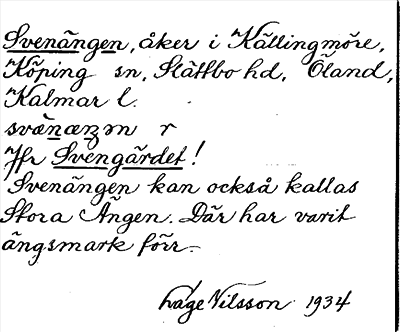 Svenängen, åker i Källingmöre,
Köping sn, Slättbo hd, Öland,
Kalmar l.
svänæŋən r
Jfr Svengärdet!
Svenängen kan också kallas
Stora Ängen. Där har varit
ängsmark förr.
Håge Nilsson 1934